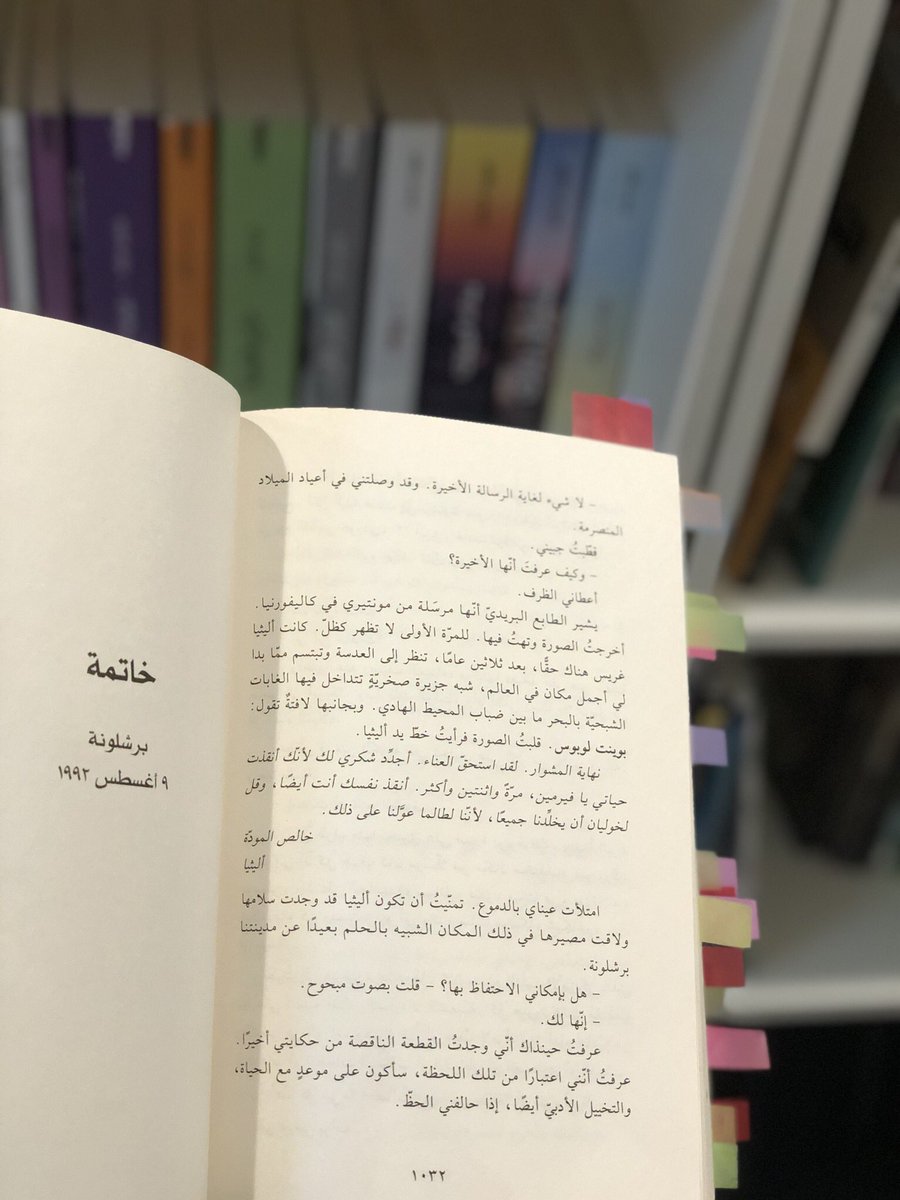 – لا شيء لغاية الرسالة الأخيرة. وقد وصلتني في أعياد الميلاد
المنصرمة.
قطّبتُ جبيني.
– وكيف عرفتَ أنّها الأخيرة؟
أعطاني الظرف.
يشير الطابع البريديّ أنّها مرسَلة من مونتيري في كاليفورنيا.
أخرجتُ الصورة وتهتُ فيها. للمرّة الأولى لا تظهر كظلّ. كانت أليثيا
غريس هناك حقًّا، بعد ثلاثين عامًا، تنظر إلى العدسة وتبتسم ممّا بدا
لي أجمل مكان في العالم، شبه جزيرة صخريّةٍ تتداخل فيها الغابات
الشبحيّة بالبحر ما بين ضباب المحيط الهادي. وبجانبها لافتةٌ تقول:
بوينت لوبوس. قلبتُ الصورة فرأيتُ خطّ يد أليثيا.
نهاية المشوار. لقد استحقّ العناء. أجدِّد شكري لك لأنّك أنقذت
حياتي يا فيرمين، مرّةً واثنتين وأكثر. أنقذ نفسك أنت أيضًا، وقل
لخوليان أن يخلِّدنا جميعًا، لأنّنا لطالما عوَّلنا على ذلك.
خالص المودّة
أليثيا
امتلأت عيناي بالدموع. تمنّيتُ أن تكون أليثيا قد وجدت سلامها
ولاقت مصيرها في ذلك المكان الشبيه بالحلم بعيدًا عن مدينتنا
برشلونة.
– هل بإمكاني الاحتفاظ بها؟ – قلت بصوت مبحوح.
– إنّها لك.
عرفتُ حينذاك أنّي وجدتُ القطعة الناقصة من حكايتي أخيرًا.
عرفتُ أنّني اعتبارًا من تلك اللحظة، سأكون على موعدٍ مع الحياة،
والتخييل الأدبيّ أيضًا، إذا حالفني الحظّ.
١٠٣٢
خاتمة
برشلونة
٩ أغسطس ١٩٩٢